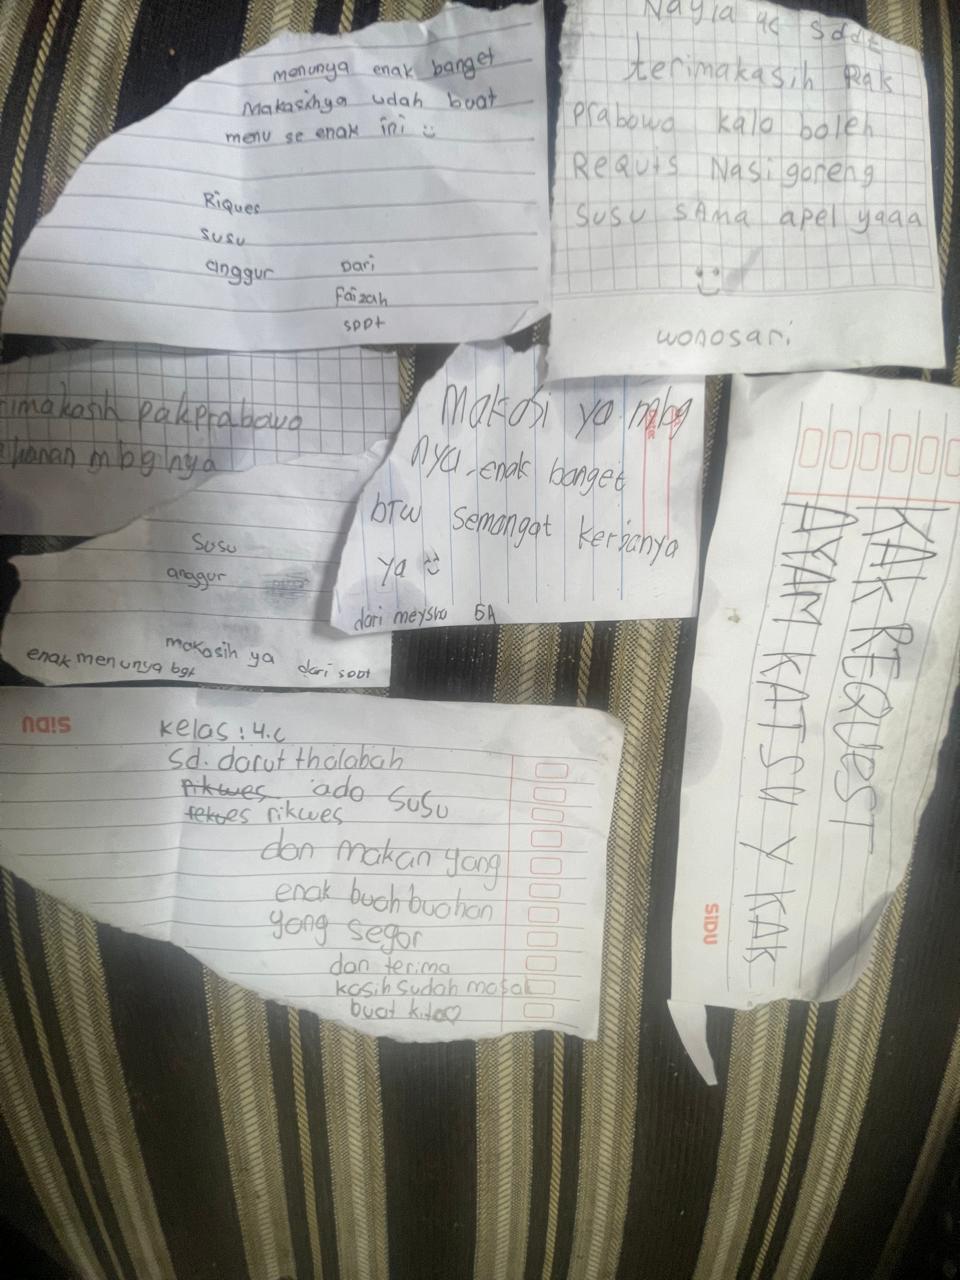 menunya enak banget
Makasihya udah buat
menu se enak ini :)
Riques
susu
anggur
Dari
Faizah
SDDT
Nayla 4c SDDT
terimakasih Pak
Prabowo kalo boleh
Requis Nasi goreng
susu sama apel yaaa
wonosari
imakasih pakprabowo
mbg nya
susu
anggur
makasih ya dari SDDT
enak menunya bgt
Makasi ya mbg
nya enak banget
btw semangat kerjanya
ya :)
dari meysha 5A
KAK REQUEST
AYAM KATSU Y KAK
SIDU
SIDU
Kelas : 4.c
Sd. darut thalabah
rikwes ado susu
rekwes rikwes
dan makan yang
enak buah buahan
yang segar
dan terima
kasih sudah masak
buat kita♡